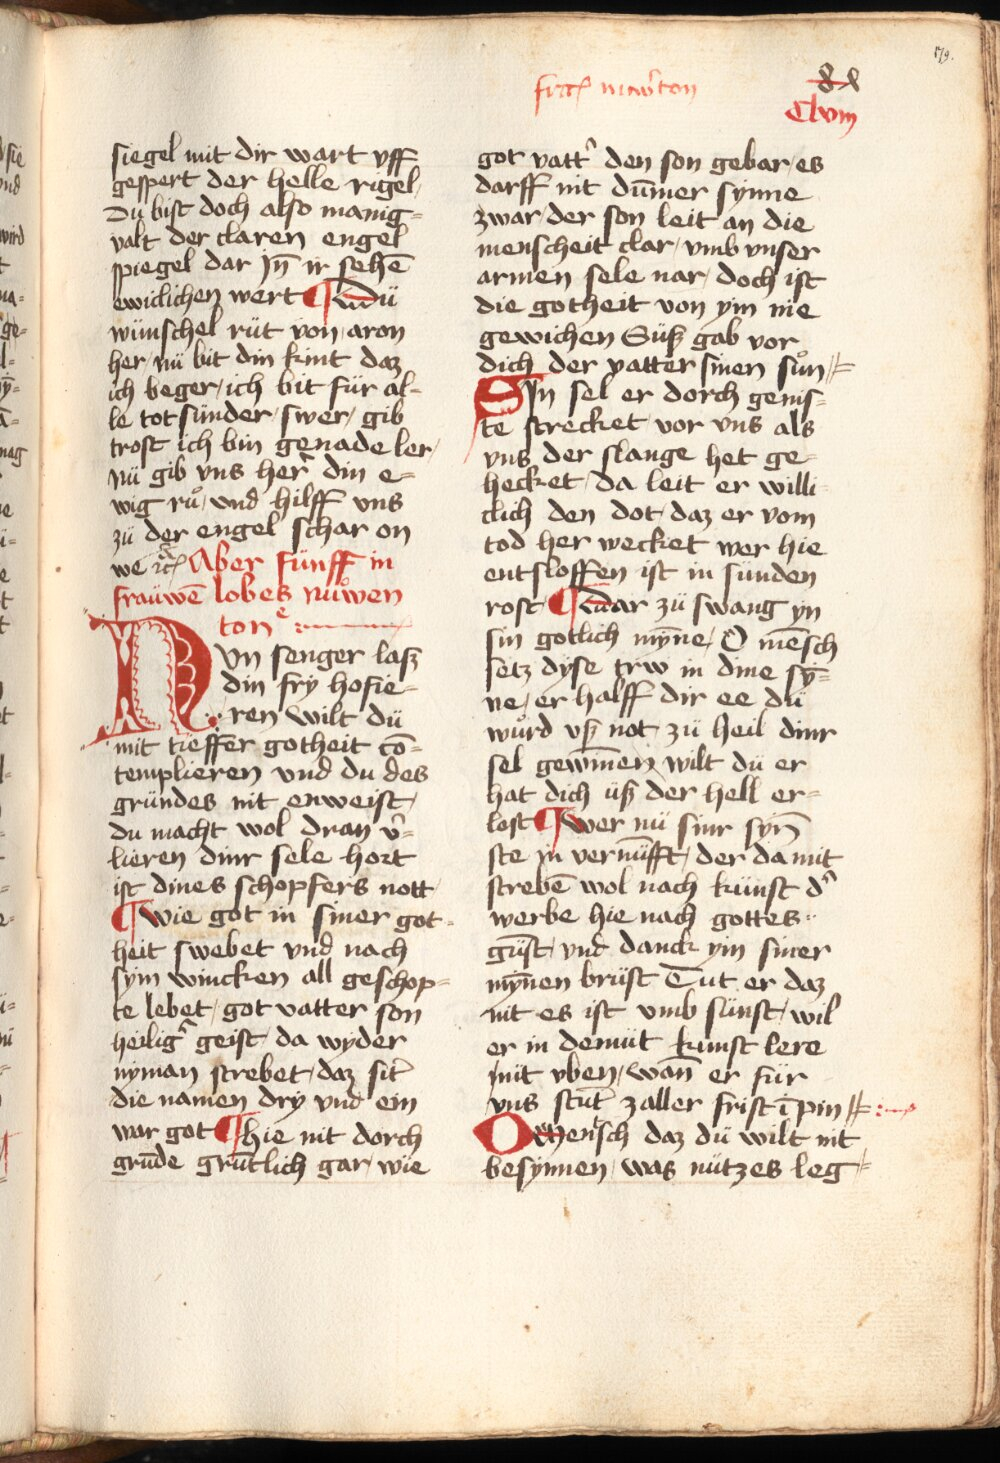 179.
frau͛ nuwẽ ton
Clvııȷ
siegel mit dir wart vff
gespert der helle rigel /
Du bist doch also manig=
valt der claren engel
spiegel dar Jn̄ ir sehē
ewiclichen wert ¶ Dü
wünschel rüt von aron
her / nü bit din kint daz
ich beger / ich bit für al=
le tot sünder / swer / gib
trost ich bin genade ler /
nü gib vns her̄ din e=
wig ruͦ / vnd hilff vns
zü der engel schar on
we ꝛc Aber fünff in
frauwē lobes nuͦwen
ton
NVn senger lasz
din fry hofie=
ren wilt dü
mit tieffer gotheit cō=
templieren vnd du des
gründes nit enweist /
du macht wol dran v̓=
lieren dinr sele hort
ist dines schopfers nott
¶ wie got in siner got=
heit swebet vnd nach
sym wincken all geschop=
te lebet / got vatter son
heilig̓ geist / da wyder
nyman strebet / daz sit̓
die namen dry vnd ein
war got ¶ hie nit dorch
grūde grūtlich gar / wie
got vatt̓ den son gebar / es
darff nit dūmer synne
zwar / der son leit an die
menscheit clar / vmb vnser
armen sele nar / doch ist
die gotheit von ym nie
gewichen Süsz gab vor
dich der vatter sinen suͦn /
Sin sel er dorch genis=
te strecket vor vns als
vns der slange het ge=
hecket / da leit er willi=
clich den dot / daz er vom
tod her wecket wer hie
entsloffen ist in sünden
rost / ¶ dar zü swang yn
sin gotlich mȳne / O mēsch
setz dyse trw in dine sȳ=
ne / er halff dir ee dü
wuͦrd vsz not zü heil dinr
sel gewīnen wilt dü er
hat dich üsz der hell er=
lost ¶ wer nü sinr syn̄
ste in vernūfft / der da mit
strebē wol nach künst d̓
werbe hie nach gottes
gūst / vnd danck ym siner
mȳnen brüst Tut er daz
nit es ist vmb sünst / wil
er in demüt kunst lere
mit vben / wan̄ er für
vns stūt zaller frist ī pin
O mensch daz dü wilt nit
besynnen / was nützes leg=